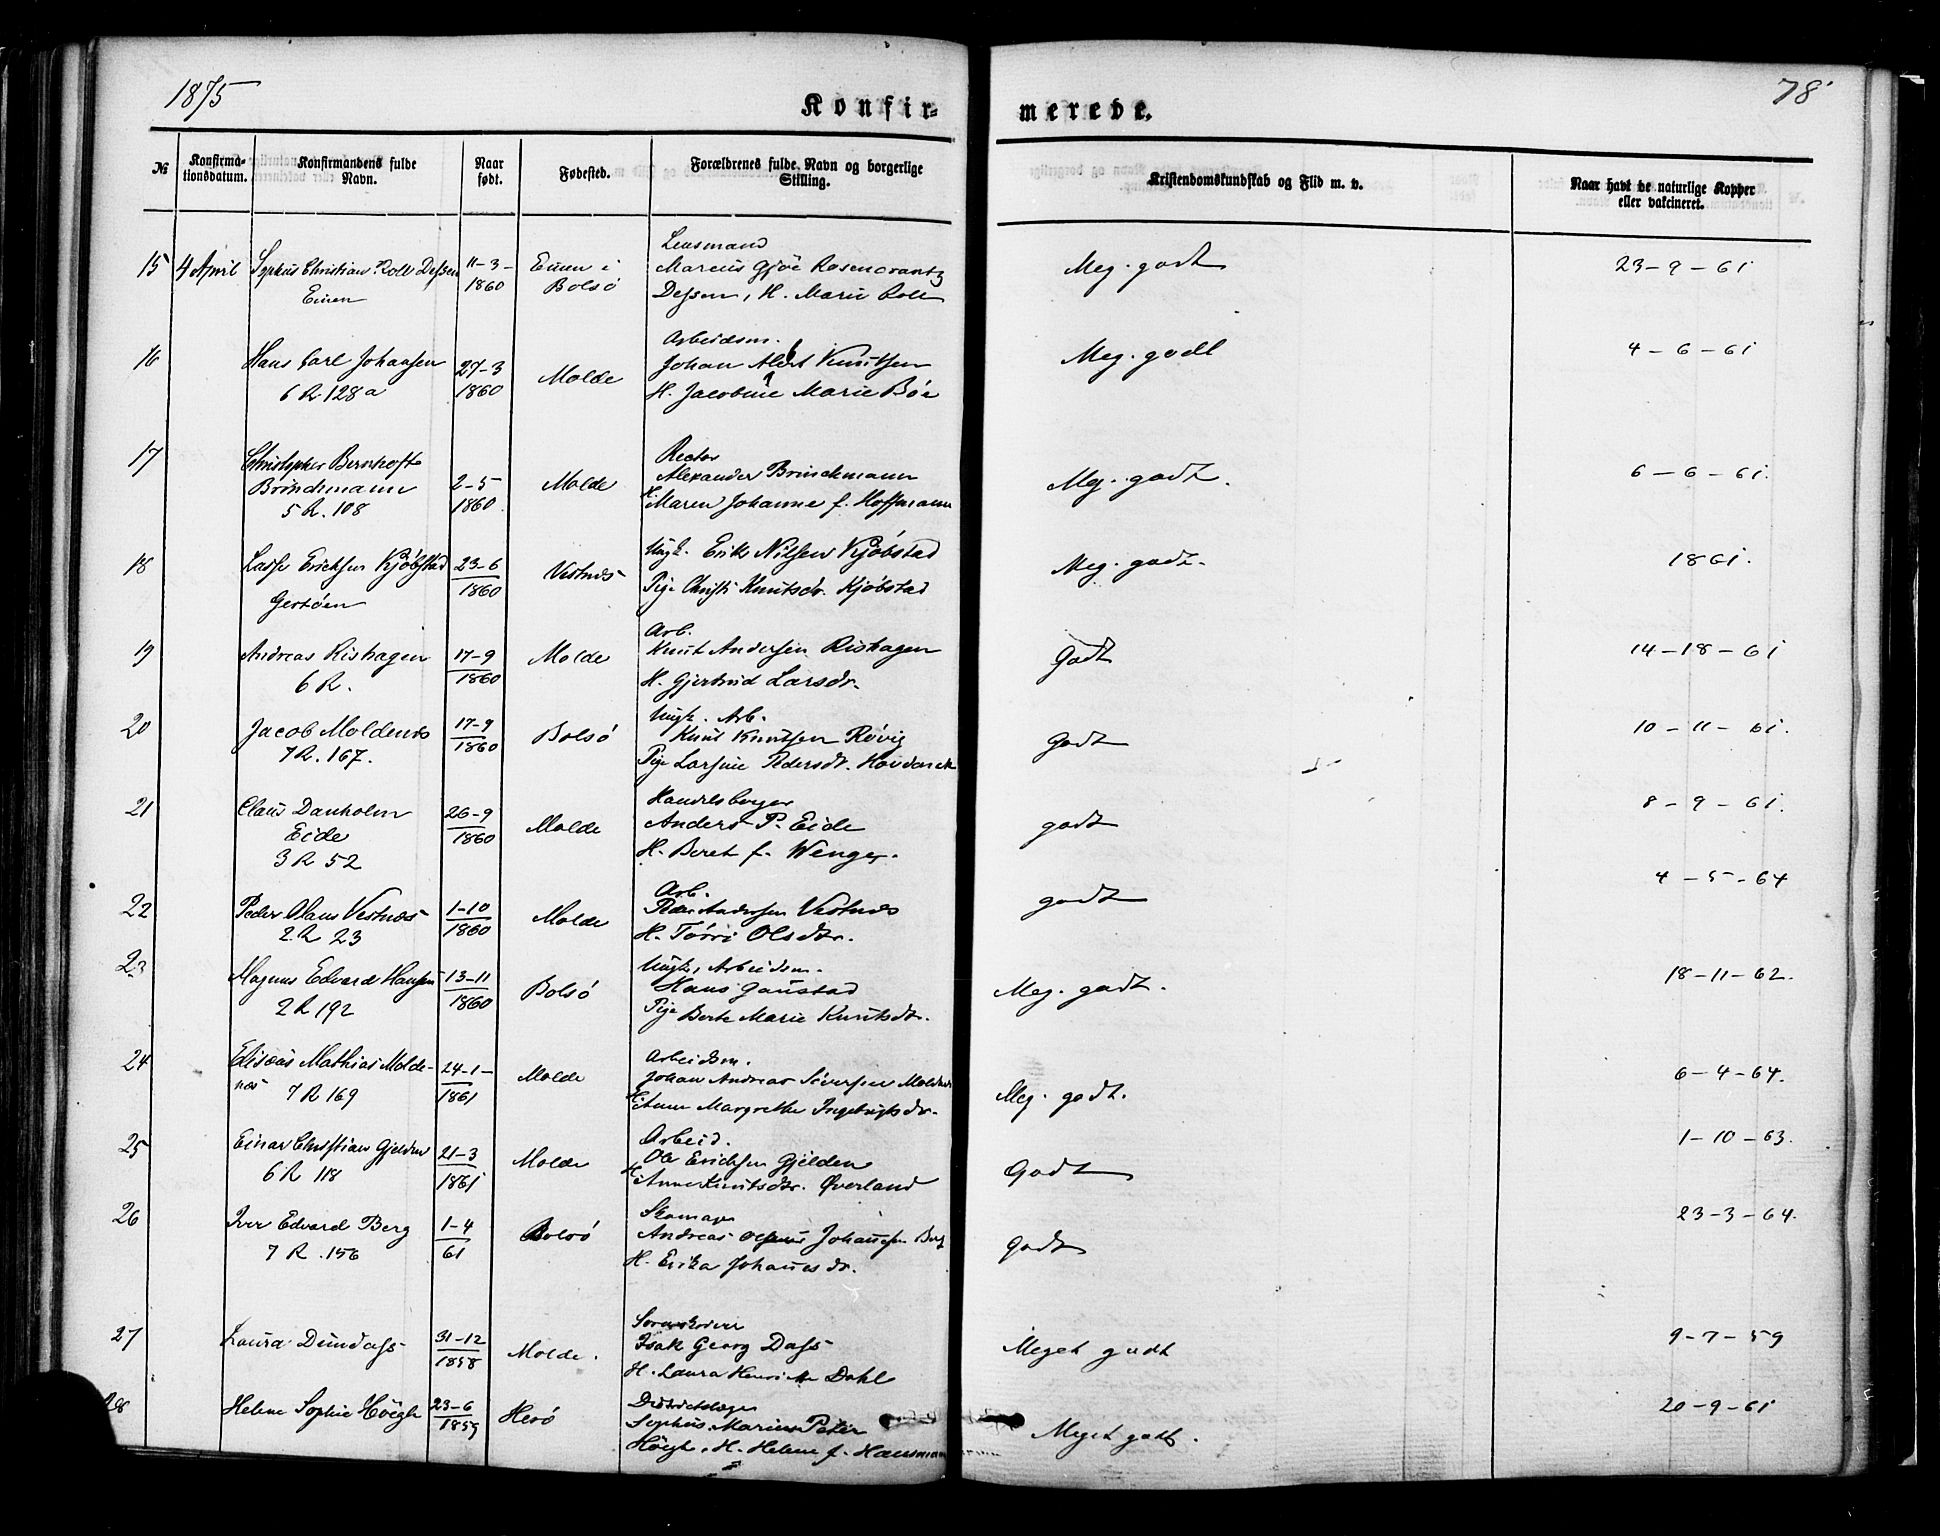 1875
78
Konfir-
merede.
№
Konfirma-
tionsdatum.
Konfirmandens fulde
Navn.
Naar
født.
Fødested.
Forældrenes fulde Navn og borgerlige
Stilling.
Kristendomskundskab og Flid m. v.
Naar havt de naturlige Kopper
eller vakcineret.
15 4 April Sophus Christian Roll Dessen 11-3- 1860 Bolsø
Lensmand
Marcus Gjøe Rosencrantz
Dessen, H. Marie Roll
Meg. godt 23-9-61
16 Hans Carl Johansen
6 R. 128a
27-3
1860
Molde
Arbeidsm.
Johan Knutsen
H. Jacobine Marie Bøe
Meg. godt 4-6-61
17 Christopher Bernhoft
Brinchmann
5 R. 108
2-5
1860
Molde
Rector
Alexander Brinchmann
H. Maren Johanne f. Hoffmann
Meg. godt. 6-6-61.
18 Lasse Ericksen Kjøbstad
23-6
1860
Vestnes
Ungk. Erik Nilsen Kjøbstad
Pige Christi Knutsdr. Kjøbstad
Meg. godt. 1861.
19 Andreas Rishagen
6 R.
17-9
1860
Molde
Arb.
Knut Andersen Rishagen
H. Gjertrud Larsdr.
Godt 14-18-61
20 Jacob Moldenes
7 R. 167.
17-9
1860
Bolsø
Ungk. Arb.
Knut Knutsen Røvig
Pige Larsine Pedersdr.
Godt 10-11-61.
21 Claus Danholm
Eide
3 R 52
26-9
1860
Molde
Handelsborger
Anders P. Eide
H. Beret f. Wenger.
godt 8-9-61.
22 Peder Olaus Vestnes
2 R 23
1-10
1860
Molde
Arb.
Peder Andersen Vestnes
H. Olsdtr.
godt 4-5-64
23 Magnus Edvard Hansen
2 R 192
13-11
1860
Bolsø
Ungk. Arbeidsm.
Hans Gaustad
Pige Berte Marie Knutsdtr.
Meg. godt. 18-11-62.
24 Elisæus Mathias Molde-
næs
7 R 169
24-1-
1861
Molde
Arbeidsm.
Johan Andreas Siversen Moldenes
H. Anne Margrethe Ingebrigtsdr.
Meg. godt. 6-4-64.
25 Einar Christian Gjelden
6 R 118
21-3
1861
Molde
Arbeid.
Ole Ericksen Gjelden
H. Anne Knutsdtr. Øverland
Godt 1-10-63.
26 Iver Edvard Berg
7 R. 156
1-4
61
Bolsø
Skomager
Andreas Johannesen Berg
H. Erika Johannesdr.
Godt 23-3-64.
27 Laura Dundass
31-12
1858
Molde.
Sorenskriver
Isak Georg Dass
H. Laura Henrikke Dahl
Meget godt 9-7-59
28 Helene Sophie Høegh
23-6
1859
Herø
Districtslæge
Sophus Marius Peter
Høegh, H. Helene f. Hansmann
Meget godt. 20-9-61